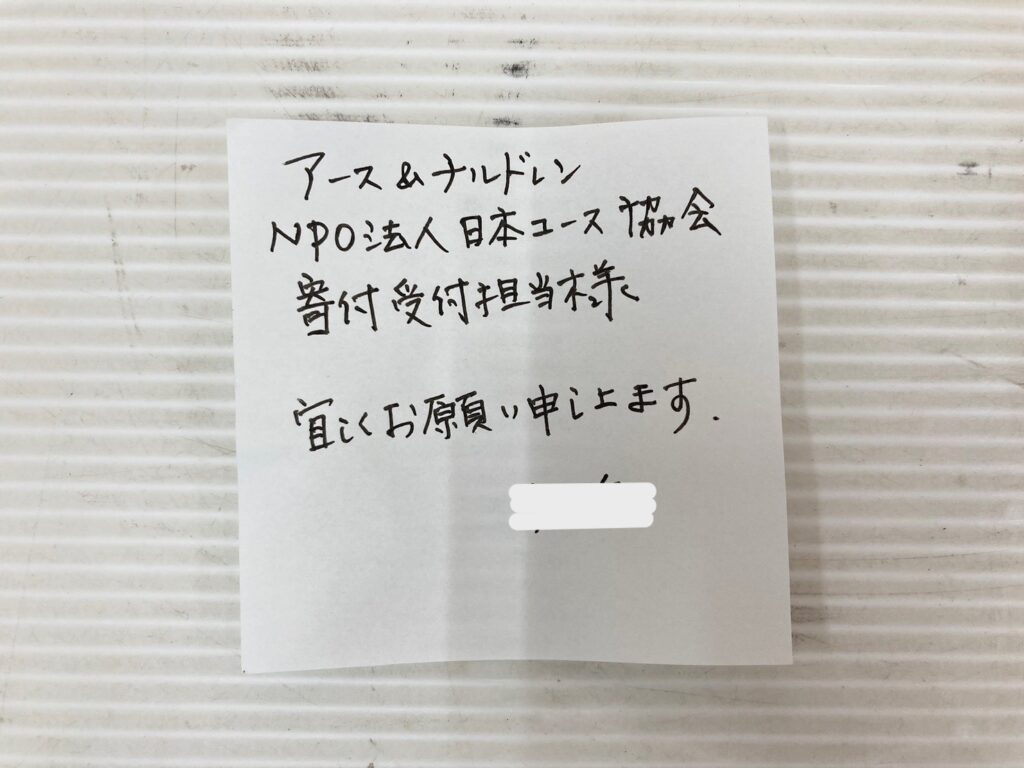 アース&ナルドレン
NPO法人日本ユース協会
寄付受付担当様
宜しくお願い申し上ます.